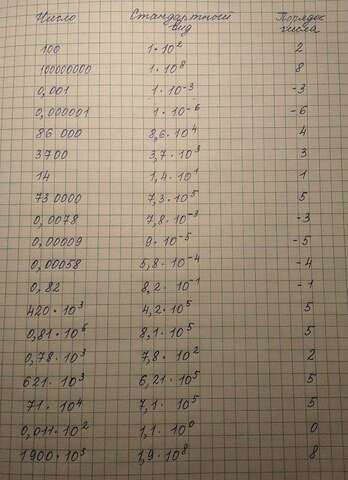 Число Стандартный вид Порядок числа
100 1·10² 2
100000000 1·10⁸ 8
0,001 1·10⁻³ -3
0,000001 1·10⁻⁶ -6
86 000 8,6·10⁴ 4
3700 3,7·10³ 3
14 1,4·10¹ 1
730000 7,3·10⁵ 5
0,0078 7,8·10⁻³ -3
0,00009 9·10⁻⁵ -5
0,00058 5,8·10⁻⁴ -4
0,82 8,2·10⁻¹ -1
420·10³ 4,2·10⁵ 5
0,81·10⁶ 8,1·10⁵ 5
0,78·10³ 7,8·10² 2
621·10³ 6,21·10⁵ 5
71·10⁴ 7,1·10⁵ 5
0,011·10² 1,1·10⁰ 0
1900·10⁵ 1,9·10⁸ 8